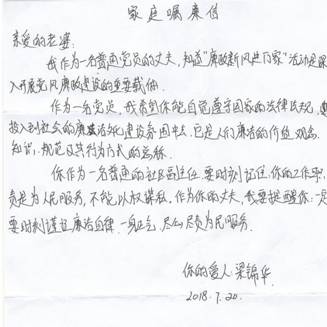 家庭嘱廉信
亲爱的老婆:
我作为一名普通党员的丈夫,知道"廉政新风进万家"活动是深
入开展党风廉政建设的重要载体。
作为一名党员,我希望你能自觉遵守国家的法律法规,
投入到社会的廉洁文化建设当中去,它是人们廉洁的价值观念
知识、规范及其行为方式的总称。
你作为一名普通的社区副主任,要时刻记住,你的工作职
责是为人民服务,不能以权谋私,作为你的丈夫,我要提醒你:一定
要时刻谨记廉洁自律,一身正气,尽心尽责为民服务。
你的爱人 梁锦华
2018.7.20.